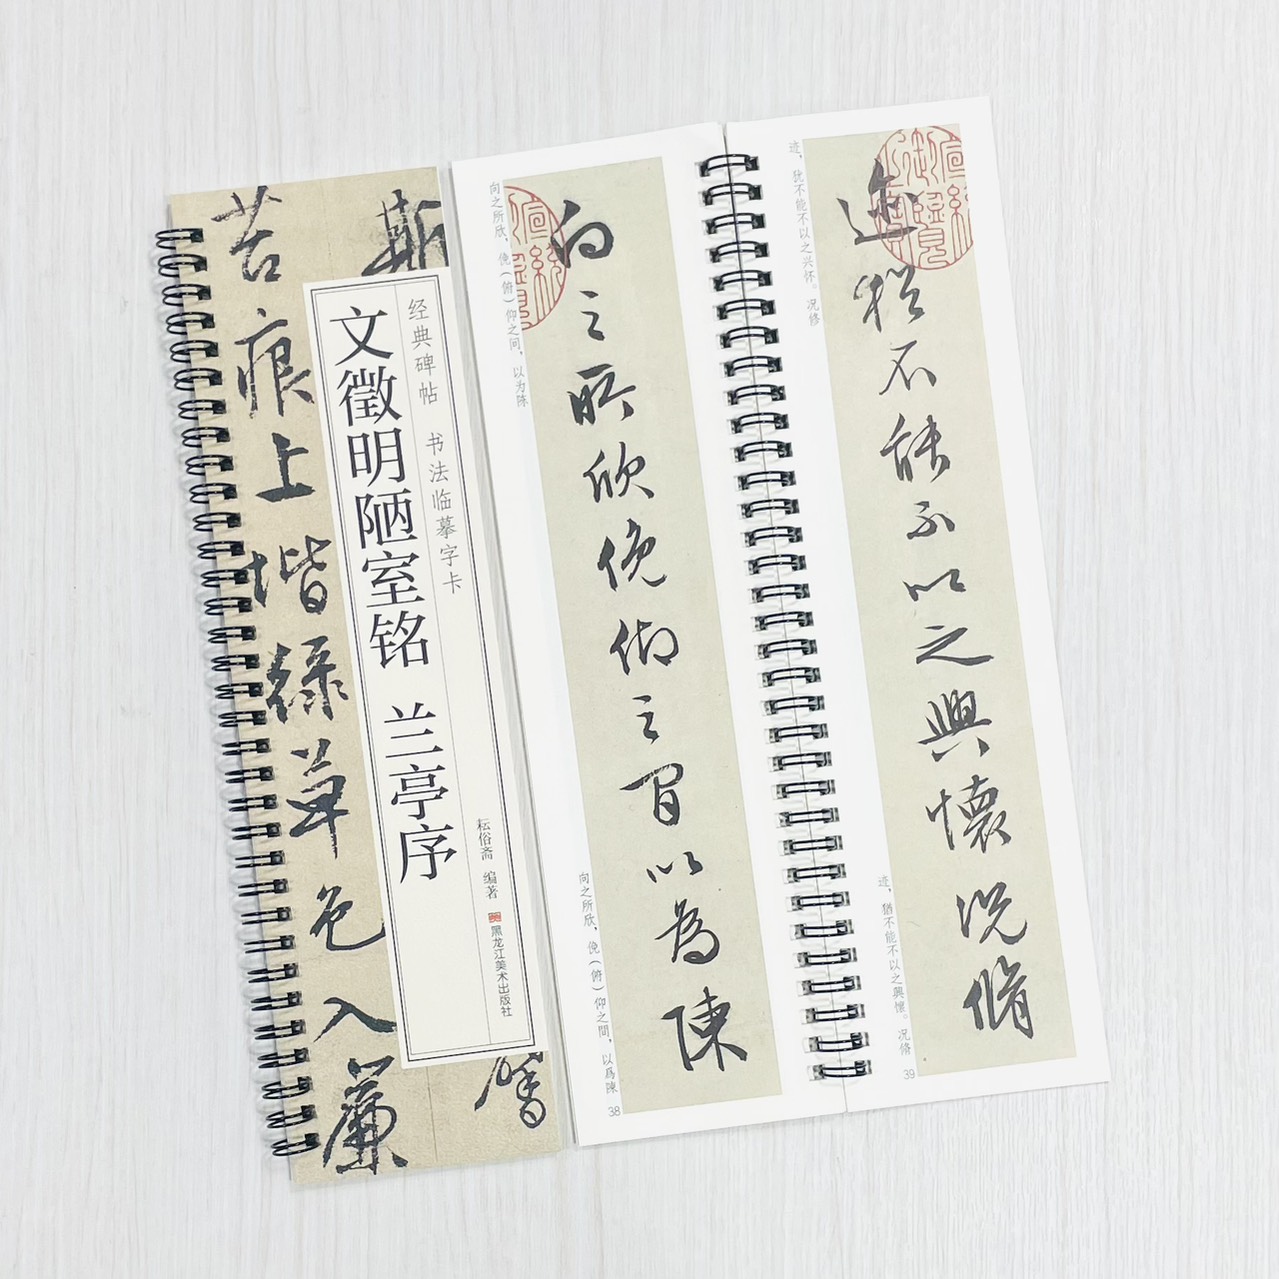 斯
苔痕上堦緑草色入簾
经典碑帖 书法临摹字卡
文徵明陋室铭 兰亭序
耘俗斋 编著
黑龙江美术出版社
向之所欣，俛（俯）仰之间，以为陈
向之所欣俛仰之間以為陳
向之所欣，俛（俯）仰之間，以爲陳
38
迹，犹不能不以之兴怀。况修
迹猶不能不以之興懷況脩
迹，猶不能不以之興懷。况脩
39